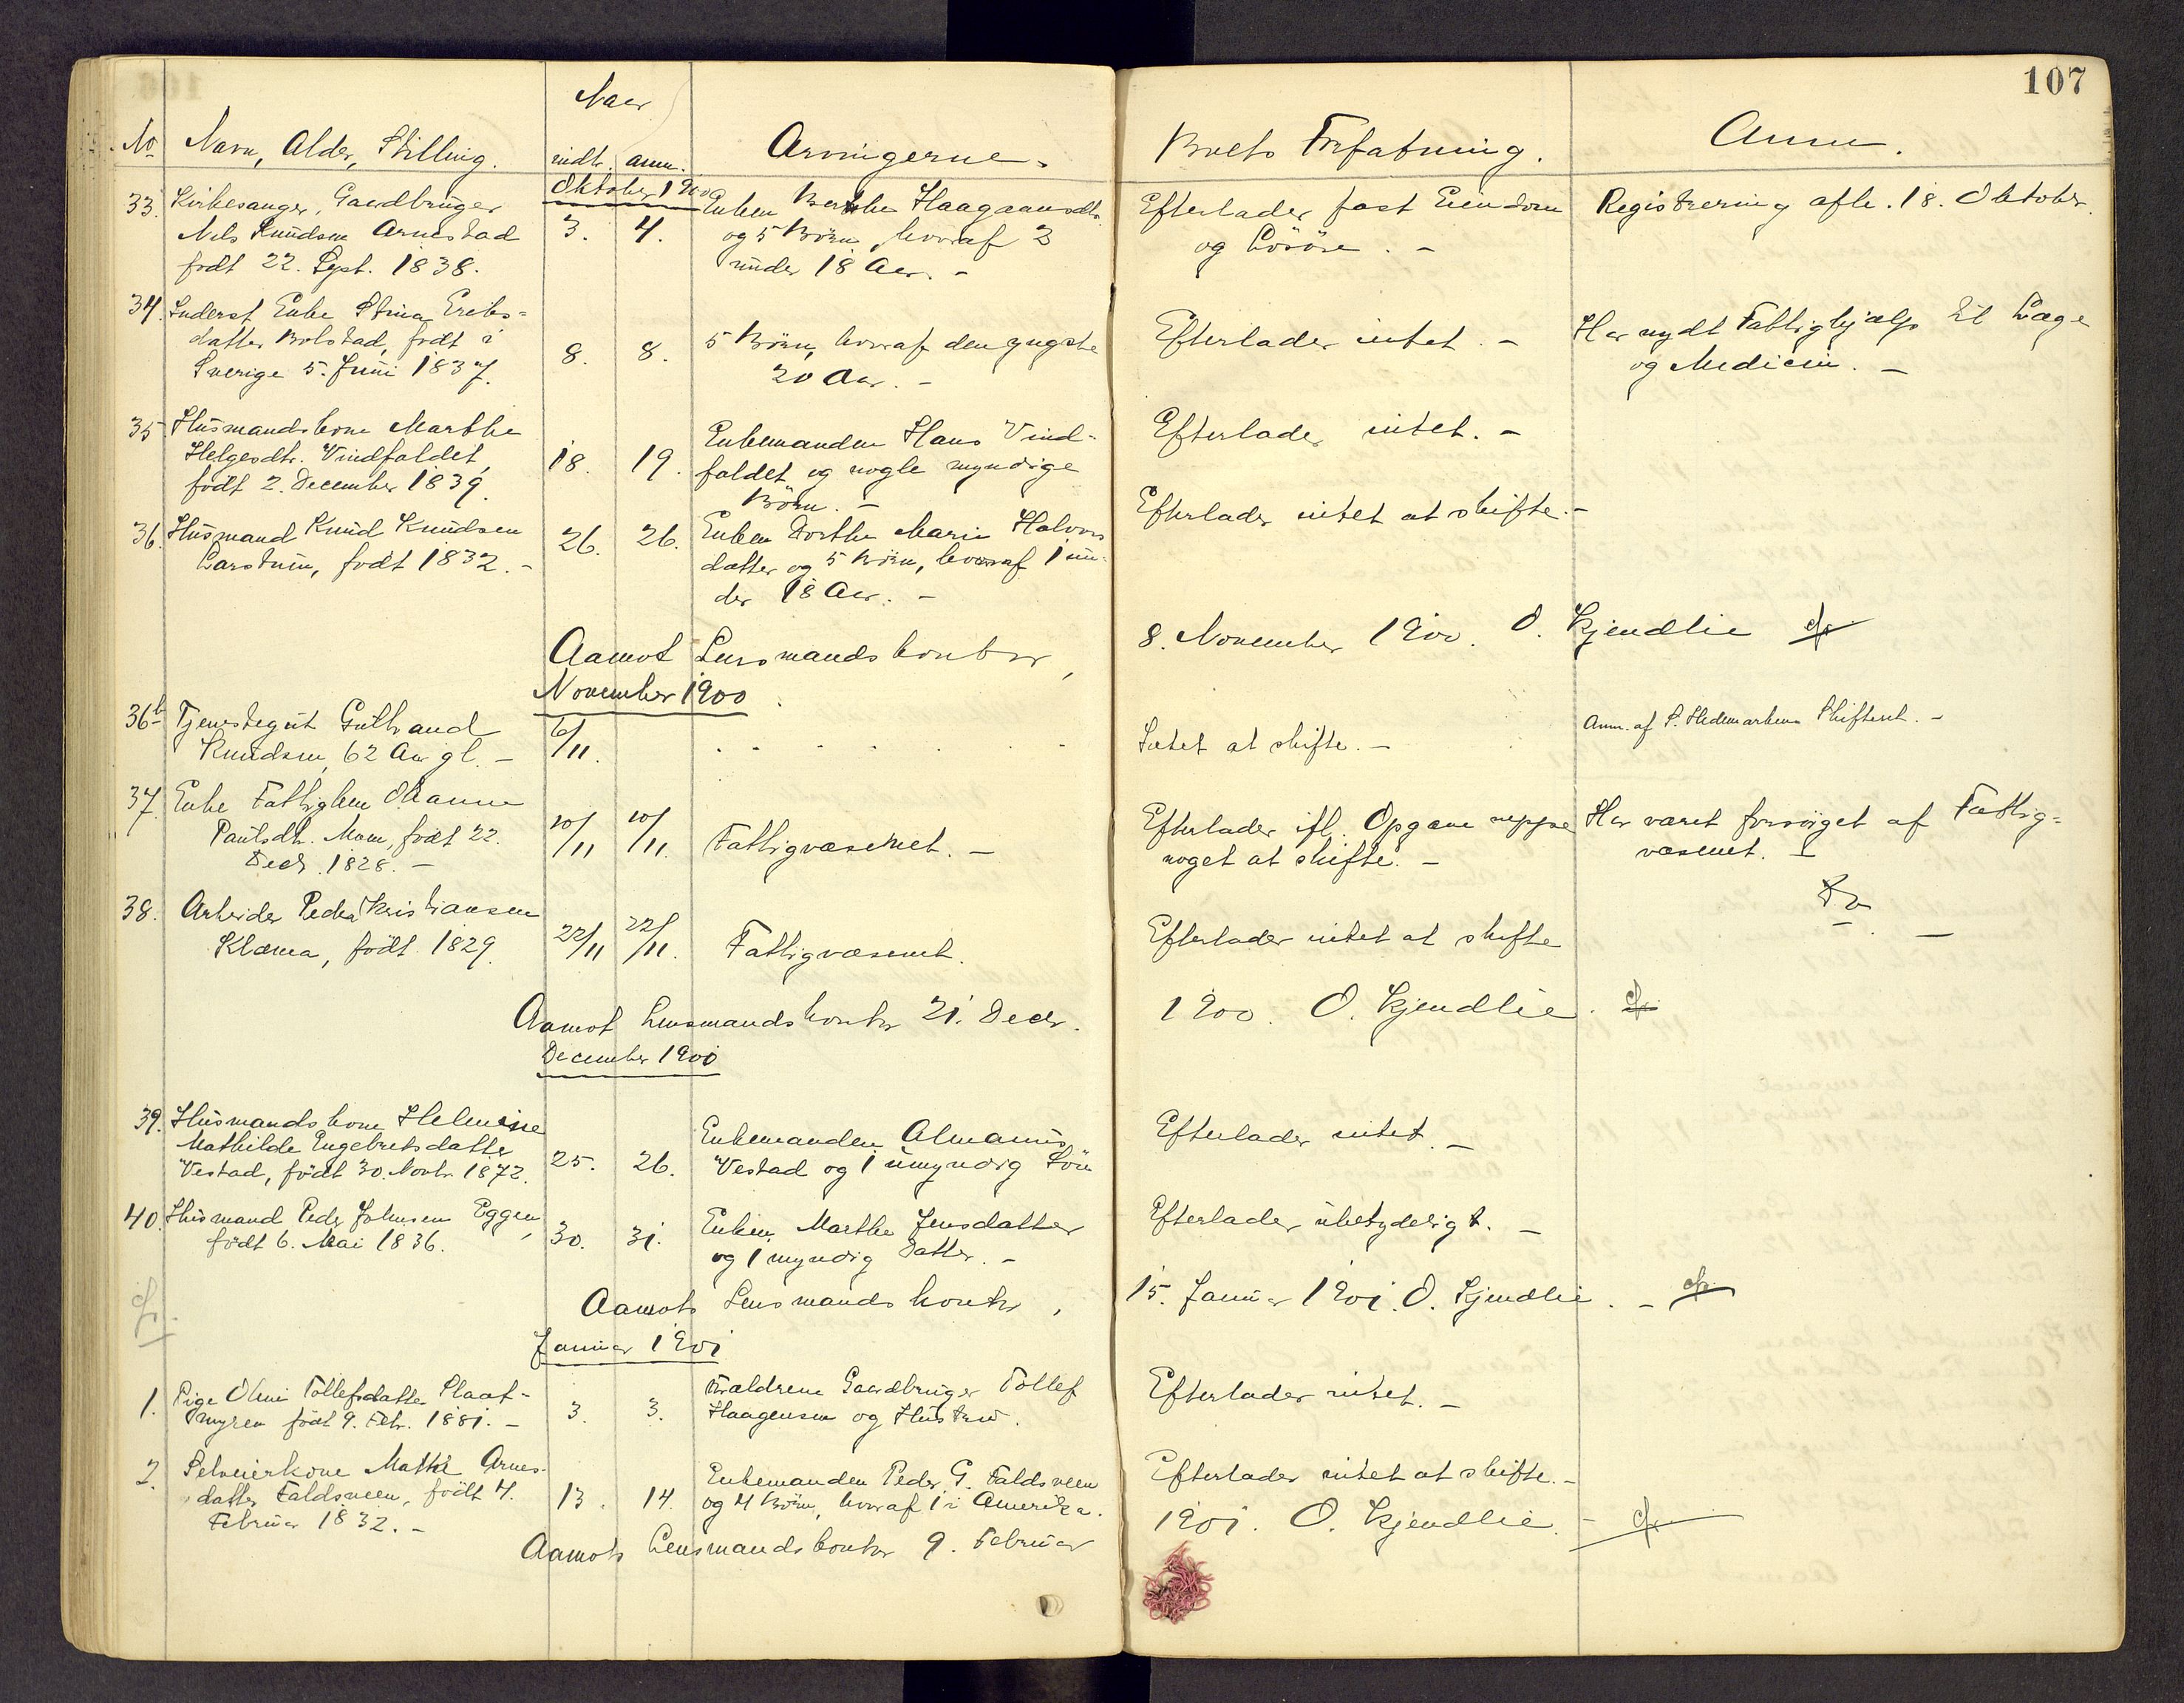 107
Naar
No Navn, Alder, Stilling. indtr. anm. Arvingerne. Boets Forfatning. Anm.
Oktober 1900
33. Kirkesanger, Gaardbruger
Nils Knudsen Arnestad
født 22. Sept. 1838.
3. 4.
Enken Berthe Haagaansdtr.
og 5 Børn, hvoraf 2
under 18 Aar. -
Efterlader fast Eiendom
og Løsøre. -
Registrering afh. 18. Oktober.
34. Inderst Enke Stina Eriks=
datter Bolstad, født i
Sverige 5. Juni 1837.
8. 8.
5 Børn, hvoraf den yngste
20 Aar. -
Efterlader intet. -
Har nydt Fattighjælp til Læge
og Medicin. -
35 Husmandskone Marthe
Helgesdtr. Vindfaldet,
født 2. December 1839.
18. 19.
Enkemanden Hans Vind-
faldet og nogle myndige
Børn. -
Efterlader intet. -
36. Husmand Knud Knudsen
født 1832. -
26. 26.
Enken Dorthe Marie Halvors
datter og 5 Børn, hvoraf 1 un-
der 18 Aar. -
Efterlader intet at skifte. -
Aamot Lensmandskontor,
8. November 1900. O. Kjendlie
November 1900
36b Tjenestegut Gulbrand
Knudsen, 62 Aar gl. -
6/11.
Intet at skifte. -
Anm. af S. Hedemarkens Skifteret. -
37. Enke Fattiglem Oleanne
Paulsdtr. Moen, født 22.
Decbr. 1828. -
10/11 10/11.
Fattigvæsenet. -
Efterlader ifl. Opgave neppe
noget at skifte. -
Har været forsørget af Fattig=
væsenet. -
38. Arbeider Peder Kristiansen
Klæma, født 1829.
22/11 22/11.
Fattigvæsenet.
Efterlader intet at skifte
Do -
Aamot Lensmandskontor 21. Decbr.
1900. O. Kjendlie.
December 1900
39. Husmandskone Helmine
Mathilde Engebretsdatter
Vestad, født 30. Novbr. 1872.
25. 26.
Enkemanden Almarius
Vestad og 1 umyndig Søn
Efterlader intet. -
40. Husmand Peder Johnsen Eggen,
født 6. Mai 1836.
30. 31.
Enken Marthe Jensdatter
og 1 myndig Datter. -
Efterlader ubetydeligt. -
Aamots Lensmandskontor,
15. Januar 1901. O. Kjendlie. -
Januar 1901
1. Pige Oline Tollefsdatter Plaat-
myren født 9. Febr. 1881. -
3. 3.
Forældrene Gaardbruger Tollef
Haagensen og Hustru.
Efterlader intet. -
2. Selveierkone Mathe Arnes-
datter Faldsveen, født 4.
Februar 1832. -
13. 14.
Enkemanden Peder G. Faldsveen
og 4 Børn, hvoraf 1 i Amerika.
Efterlader intet at skifte. -
Aamots Lensmandskontor 9. Februar
1901. O. Kjendlie. -